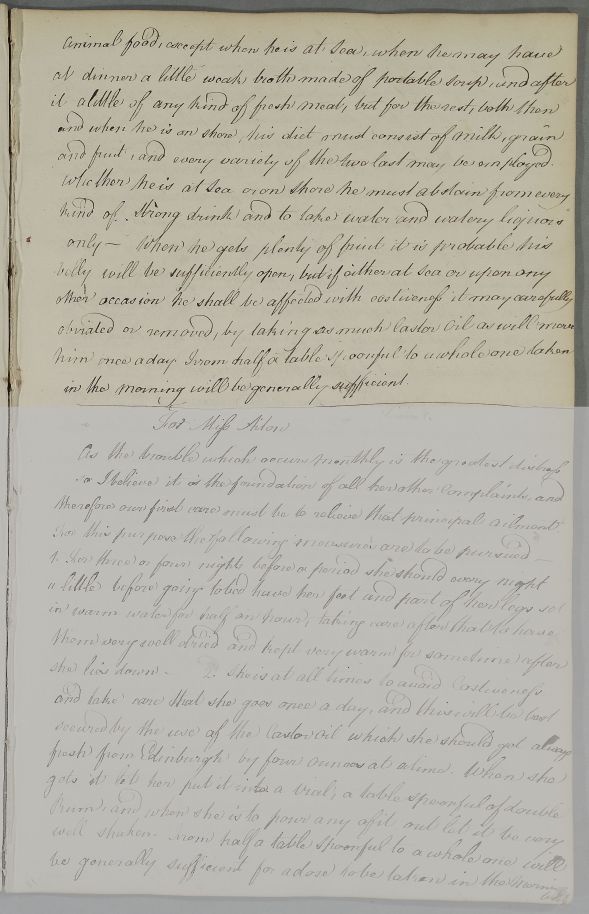 animal food, except when he is at Sea, when he may have
at dinner a little weak broth made of portable soup, and after
it a little of any kind of fresh meat, but for the rest, both then
and when he is on shore, his diet must consist of milk, grain
and fruit, and every variety of the two last may be employed.
Whether he is at Sea or on shore he must abstain from every
kind of Strong drink and to take water and watery liquors
only — When he gets plenty of fruit it is probable his
belly will be sufficiently open, but if either at Sea or upon any
other occasion he shall be affected with costiveness it may carefully
obviated or removed, by taking as much Castor Oil as will move
him once a day From half a table spoonful to a whole one taken
in the morning will be generally sufficient.
For Miss Aiton
As the trouble which occurs monthly is the greatest distress
so I believe it is the foundation of all her other Complaints and
therefore our first care must be to relieve that principal ailment
For this purpose the following measures are to be pursued —
1. For three or four nights before a period she should every night
a little before going to bed have her feet and part of her legs set
in warm water for half an hour, taking care after that to have
them very well dried and kept very warm for sometime after
she lies down - 2. She is at all times to avoid Costiveness
and take care that she goes once a day, and this will be best
secured by the use of the Castor Oil which she should get always
fresh from Edinburgh by four ounces at a time. When she
gets it let her put it into a vial, a table spoonful of double
Rum, and when she is to pour any of it out let it be very
well shaken. From half a table spoonful to a whole one will
be generally sufficient for a dose to be taken in the Morning